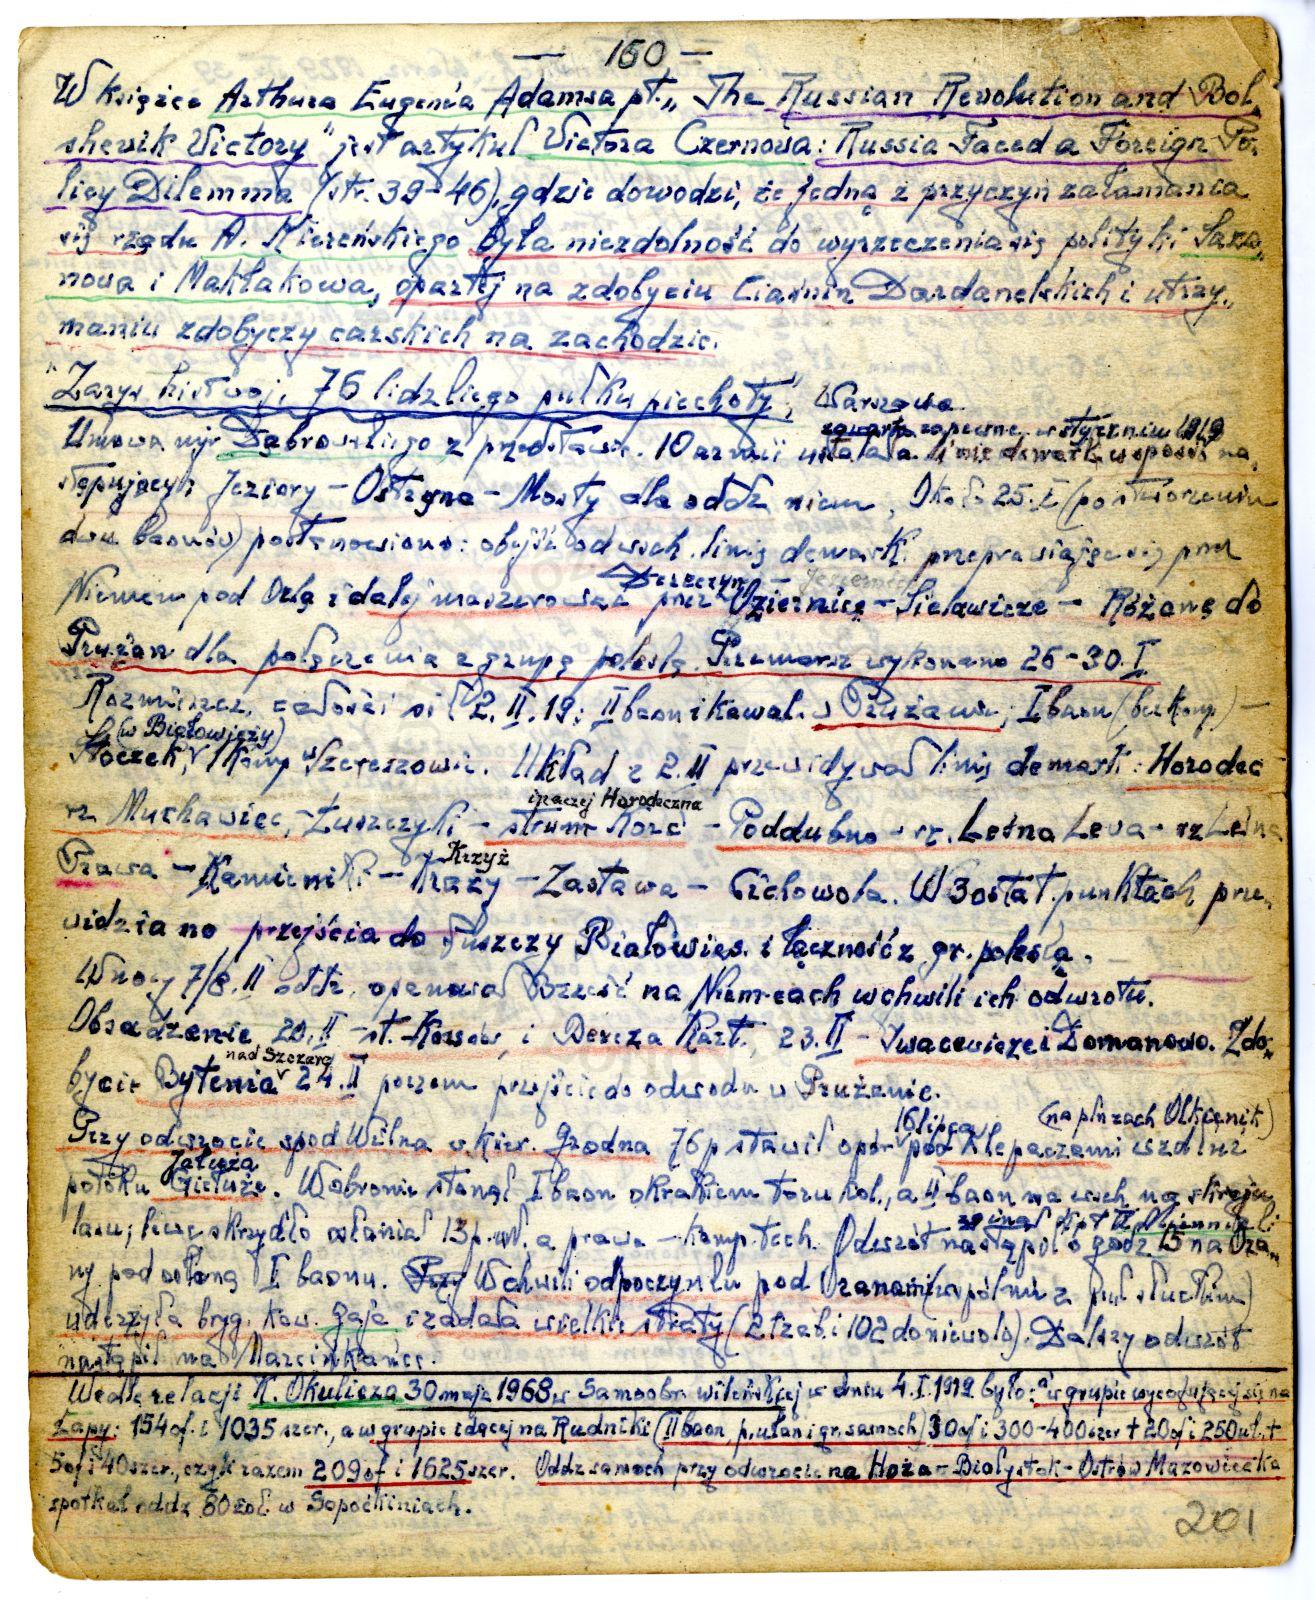 — 160 —
W książce Arthura Eugenia Adamsa pt. „The Russian Revolution and Bol-
shevik Victory" jest artykuł Victora Czernowa: Russia Faced a Foreign Po-
licy Dilemma (str. 39-46), gdzie dowodzi, że jedną z przyczyn załamania
się rządu A. Kiereńskiego była niezdolność do wyrzeczenia się polityki Saza-
nowa i Makłakowa, opartej na zdobyciu Cieśnin Dardanelskich i utrzy-
maniu zdobyczy carskich na zachodzie.
"Zarys hist. woj. 76 lidzkiego pułku piechoty", Warszawa
zawarta zapewne w styczniu 1919
Umowa mjr Dąbrowskiego z przedstawic. 10 armii ustalała linię demark. w sposób na-
stępujący: Jeziory - Ostryna - Mosty dla oddz. niem. Około 25.I (po utworzeniu
dwu baonów) postanowiono: obejść od wsch. linię demark. przeprawiając się przez
Dereczyn - Jeziernicę
Niemen pod Orlą i dalej maszerować przez Oziernicę - Sielawicze - Różanę do
Prużan dla połączenia z grupą poleską. Przemarsz wykonano 26-30.I
Rozmieszcz. całości sił 2.II.19: II baon i kawal. w Prużanie, I baon (bez komp.) -
(w Białowieży)
Stoczek, 1 komp. w Szereszowie. Układ z 2.II przewidywał linię demark.: Horodec
inaczej Horodeczna
rz. Muchawiec, - Łuszczyki - strum. Korć - Poddubno - rz. Leśna Lewa - rz. Leśna
Krzyż
Prawa - Kamieniki - Kraży - Zastawa - Cichowola. W 3 ostat. punktach prze-
widziano przejścia do Puszczy Białowies. i łączność z gr. poleską.
W nocy 7/8.II oddz. opanował Brześć na Niemcach w chwili ich odwrotu.
Obsadzenie 20.II - st. Kossów, i Bereza Kart. 23.II - Iwacewicze i Domanowo. Zdo-
nad Szczarą
bycie Bytenia 24.II poczem przejście do odwodu w Prużanie.
16 lipca (na płn. zach. Olkienik)
Przy odwrocie spod Wilna w kier. Grodna 76 p. stawił opór pod Klepaczami wzdłuż
potoku Giełuże. W obronie stanął I baon okrakiem toru kol., a II baon na wsch. na skraju
lasu; lewe skrzydło osłaniał 13 p. uł. a prawe - komp. tech. Odwrót nastąpił o godz. 15 na Ora-
ny pod osłoną I baonu. W chwili odpoczynku pod Oranami (wspólnie z puł. słuckim)
uderzyła bryg. kaw. Gaja i zadała wielkie straty (2 zab. i 102 do niewoli). Dalszy odwrót
nastąpił na Marcinkańce.
Wedle relacji K. Okulicza 30 maja 1968 w Samoobr. wileńskiej w dniu 4.I.1919 było: a w grupie wycofującej się na
Łapy: 154 of. i 1035 szer., a w grupie idącej na Rudniki (II baon, p. ułan i gr. samoch) 30 of i 300-400 szer + 20 of i 250 uł. +
5 of i 40 szer., czyli razem 209 of i 1625 szer. Oddz. samoch. przy odwrocie na Hoża - Białystok - Ostrów Mazowiecka
spotkał oddz. 80 żoł. w Sopoćkiniach.
201